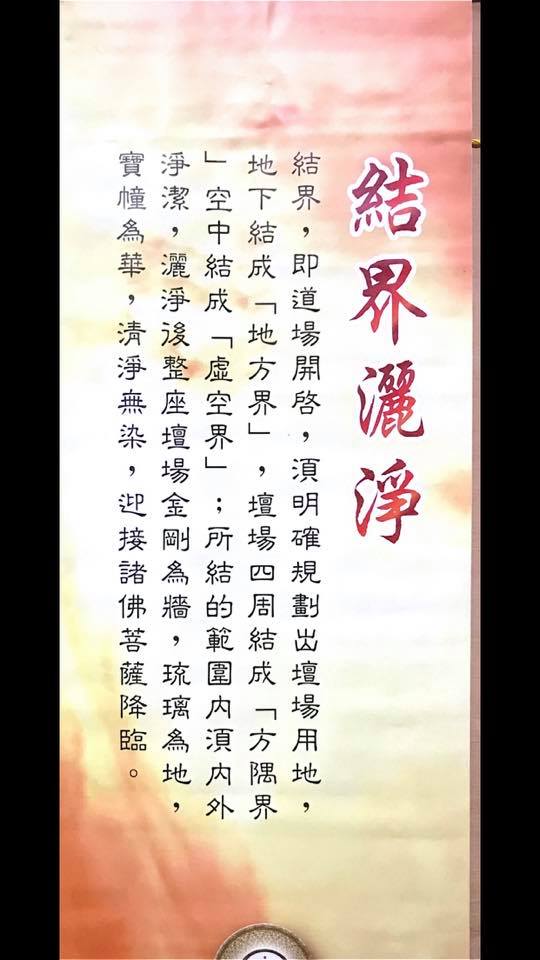 結界灑淨
結界，即道場開啓，須明確規劃出壇場用地，
地下結成「地方界」，壇場四周結成「方隅界
」空中結成「虛空界」；所結的範圍内須内外
淨潔，灑淨後整座壇場金剛為牆，琉璃為地，
寶幢為華，清淨無染，迎接諸佛菩薩降臨。